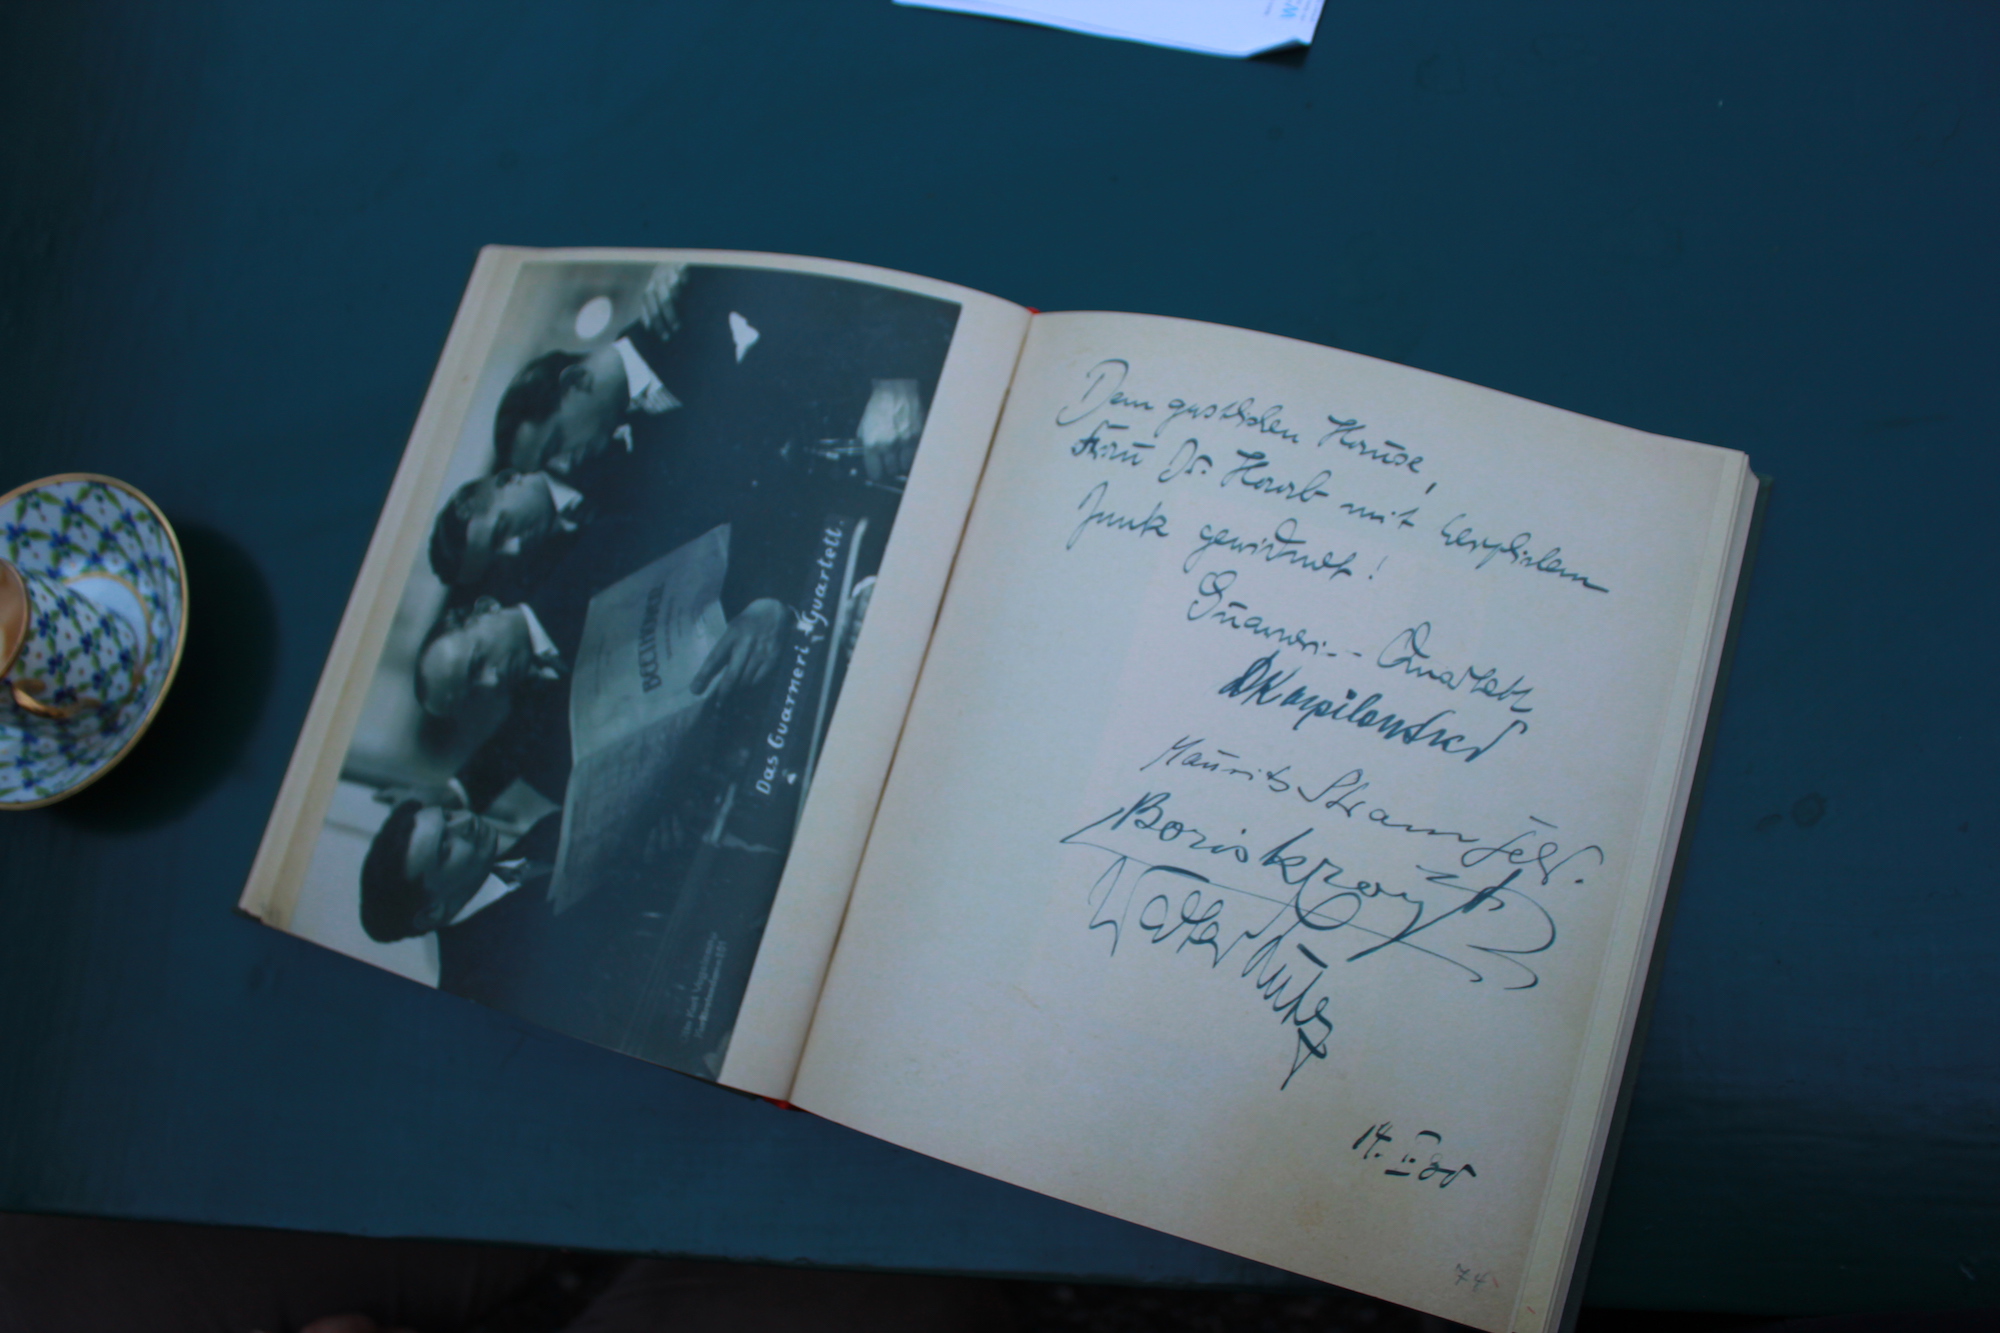 BEETHOVEN
Das Guarneri Quartett.
Dem gastlichen Hause,
Frau Dr. Haarb mit herzlichem
Dank gewidmet!
Guarneri-Quartett
DKarpilowski
Maurits Stramfeld.
Boris Kroyt
Walter
14. II.
74